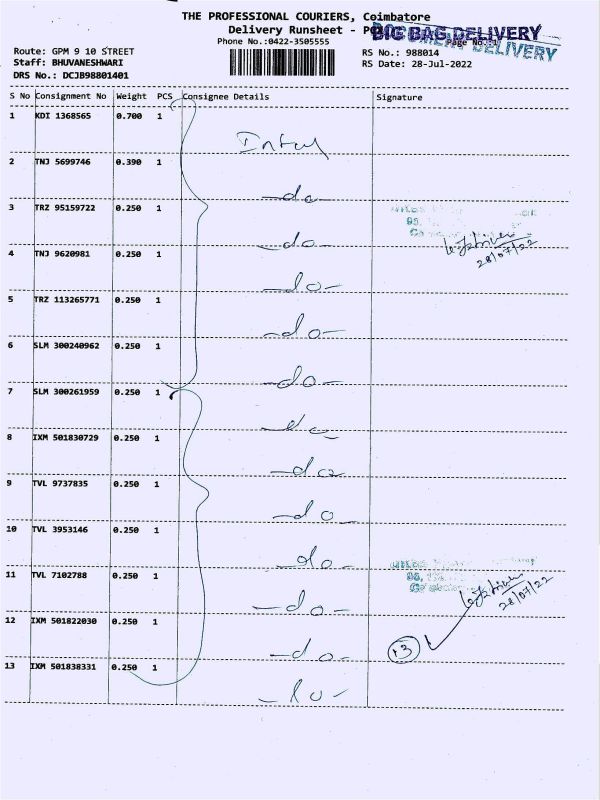 THE PROFESSIONAL COURIERS, Coimbatore
Delivery Runsheet -
BIG BAG DELIVERY
Phone No.:0422-3505555
Page No.:1
DELIVERY
Route: GPM 9 10 STREET
RS No.: 988014
Staff: BHUVANESHWARI
RS Date: 28-Jul-2022
DRS No.: DCJB98801401
S No Consignment No Weight PCS Consignee Details Signature
1 KDI 1368565 0.700 1
2 TNJ 5699746 0.390 1
-do-
3 TRZ 95159722 0.250 1
-do-
4 TNJ 9620981 0.250 1
28/07/22
-do-
5 TRZ 113265771 0.250 1
-do-
6 SLM 300240962 0.250 1
-do-
7 SLM 300261959 0.250 1
-do-
8 IXM 501830729 0.250 1
-do-
9 TVL 9737835 0.250 1
-do-
10 TVL 3953146 0.250 1
-do-
11 TVL 7102788 0.250 1
28/07/22
-do-
12 IXM 501822030 0.250 1
13
-do-
13 IXM 501838331 0.250 1
-do-